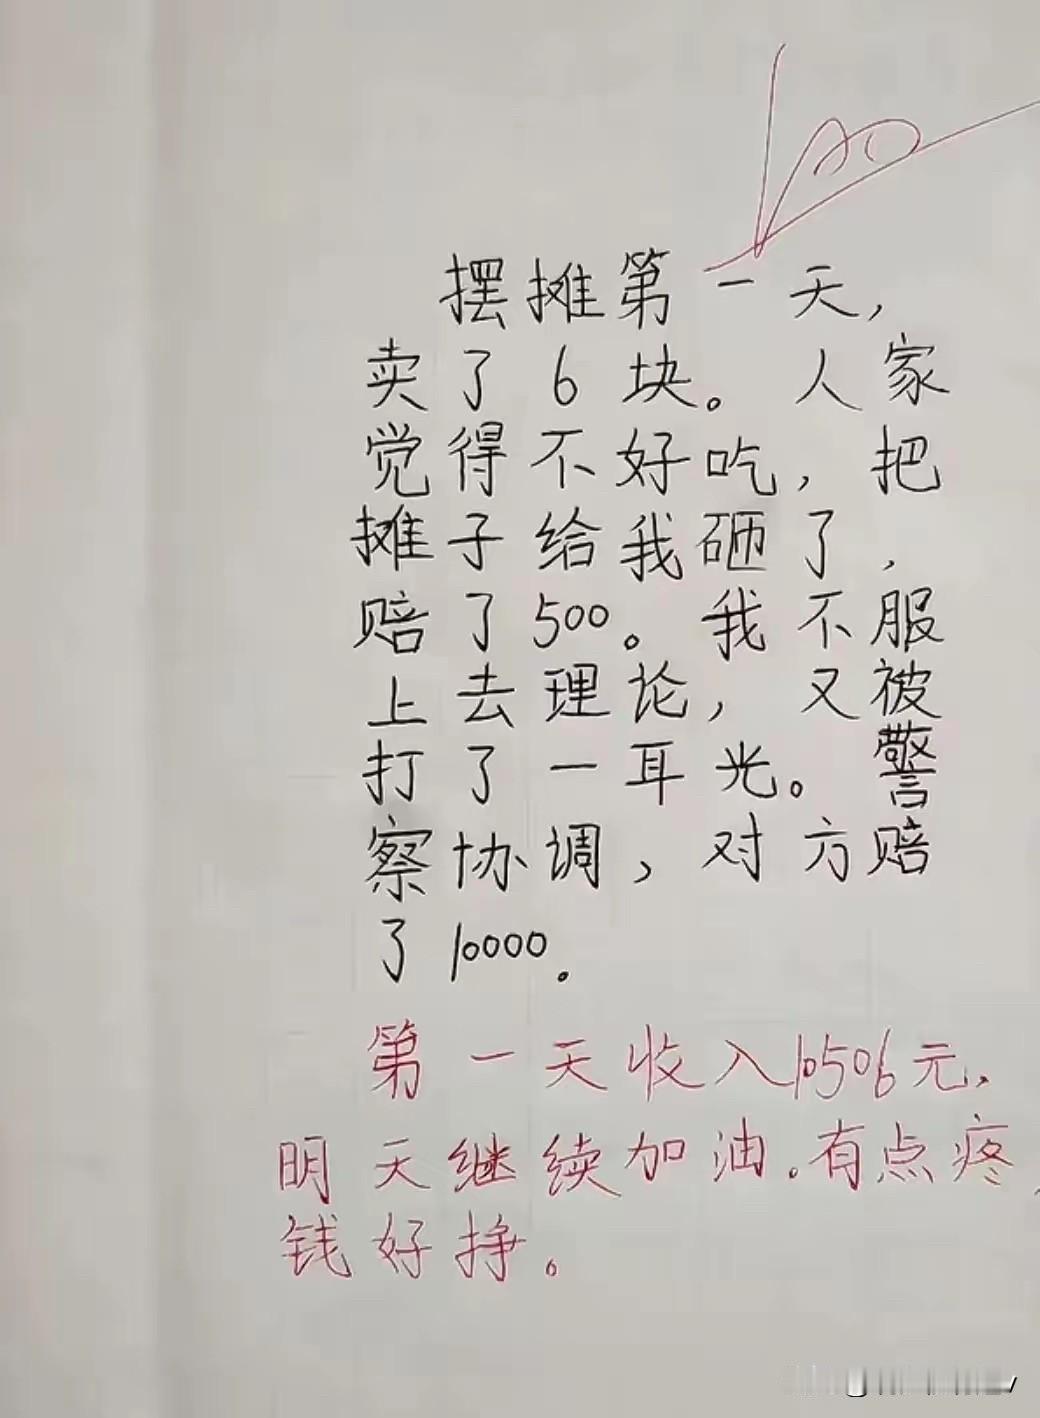 摆摊第一天,
卖了6块。人家
觉得不好吃,把
摊子给我砸了,
赔了500。我不服
上去理论,又被
打了一耳光。警
察协调,对方赔
了10000.
第一天收入10506元,
明天继续加油.有点疼,
钱好挣。